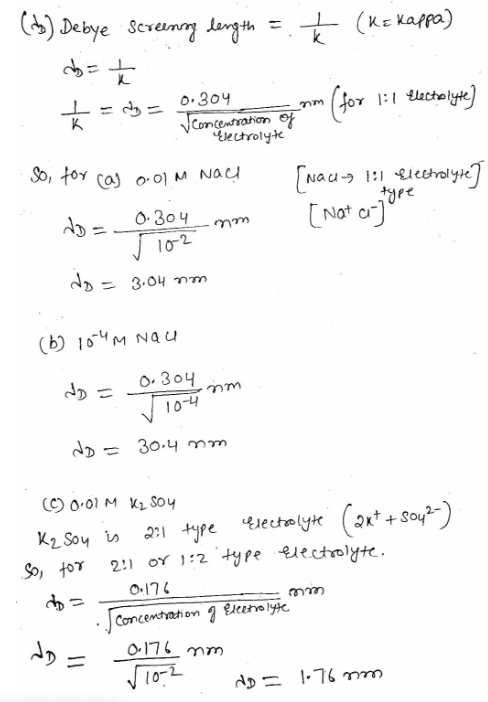 (λD) Debye Screening length = 1/k (K = Kappa)
λD = 1/k
1/K = λD = 0.304/√Concentration of Electrolyte nm (for 1:1 Electrolyte)
So, for (a) 0.01 M NaCl [NaCl → 1:1 Electrolyte] type
λD = 0.304/√10⁻² nm [Na+ Cl-]
λD = 3.04 nm
(b) 10⁻⁴ M NaCl
λD = 0.304/√10⁻⁴ nm
λD = 30.4 nm
(C) 0.01 M K2SO4
K2SO4 is 2:1 type Electrolyte (2K+ + SO4²⁻)
So, for 2:1 or 1:2 type Electrolyte.
λD = 0.176/√Concentration of Electrolyte nm
λD = 0.176/√10⁻² nm λD = 1.76 nm